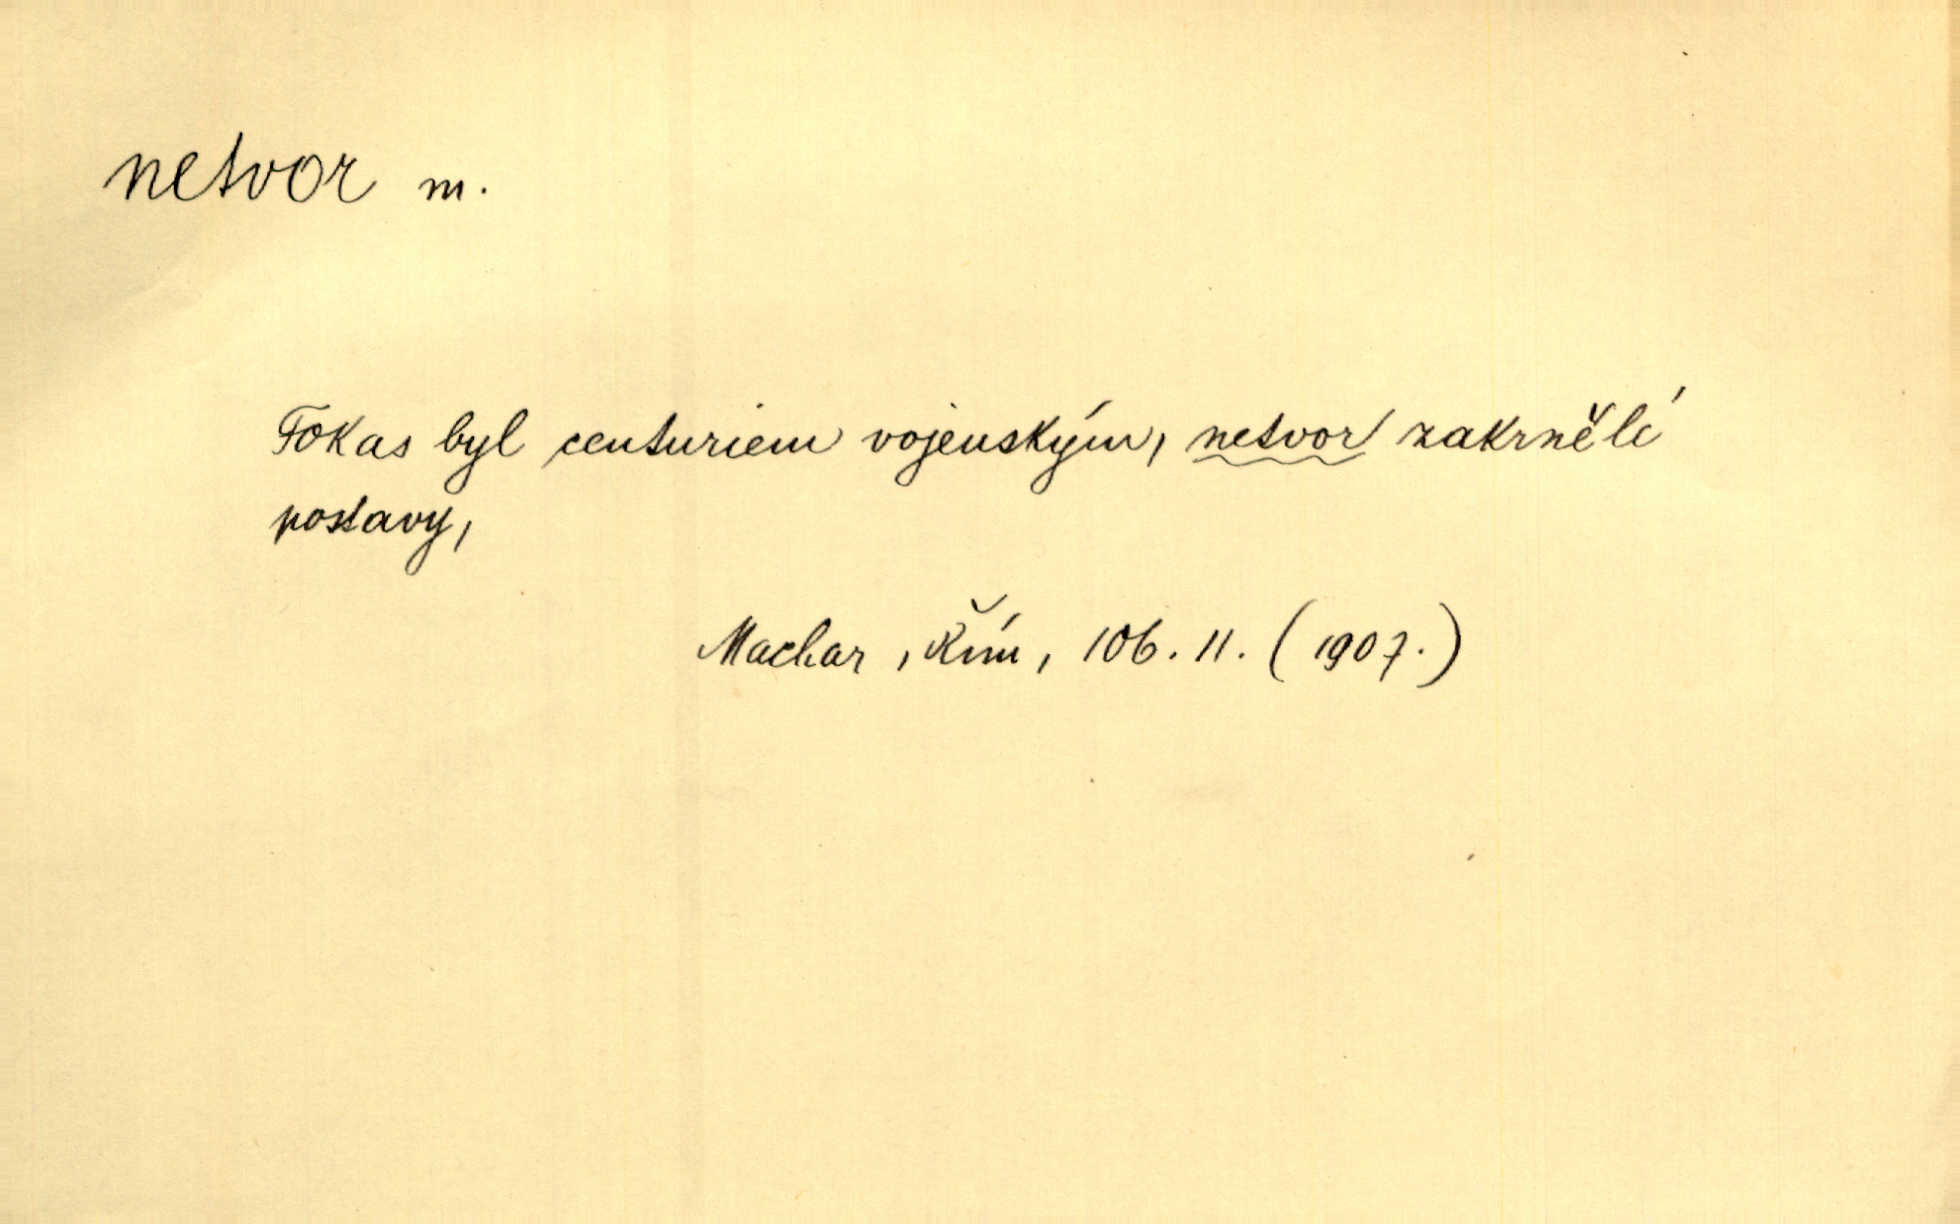 netvor m.
Fokas byl centuriem vojenským, netvor zakrnělé
postavy,
Machar, Řím, 106. 11. (1907.)